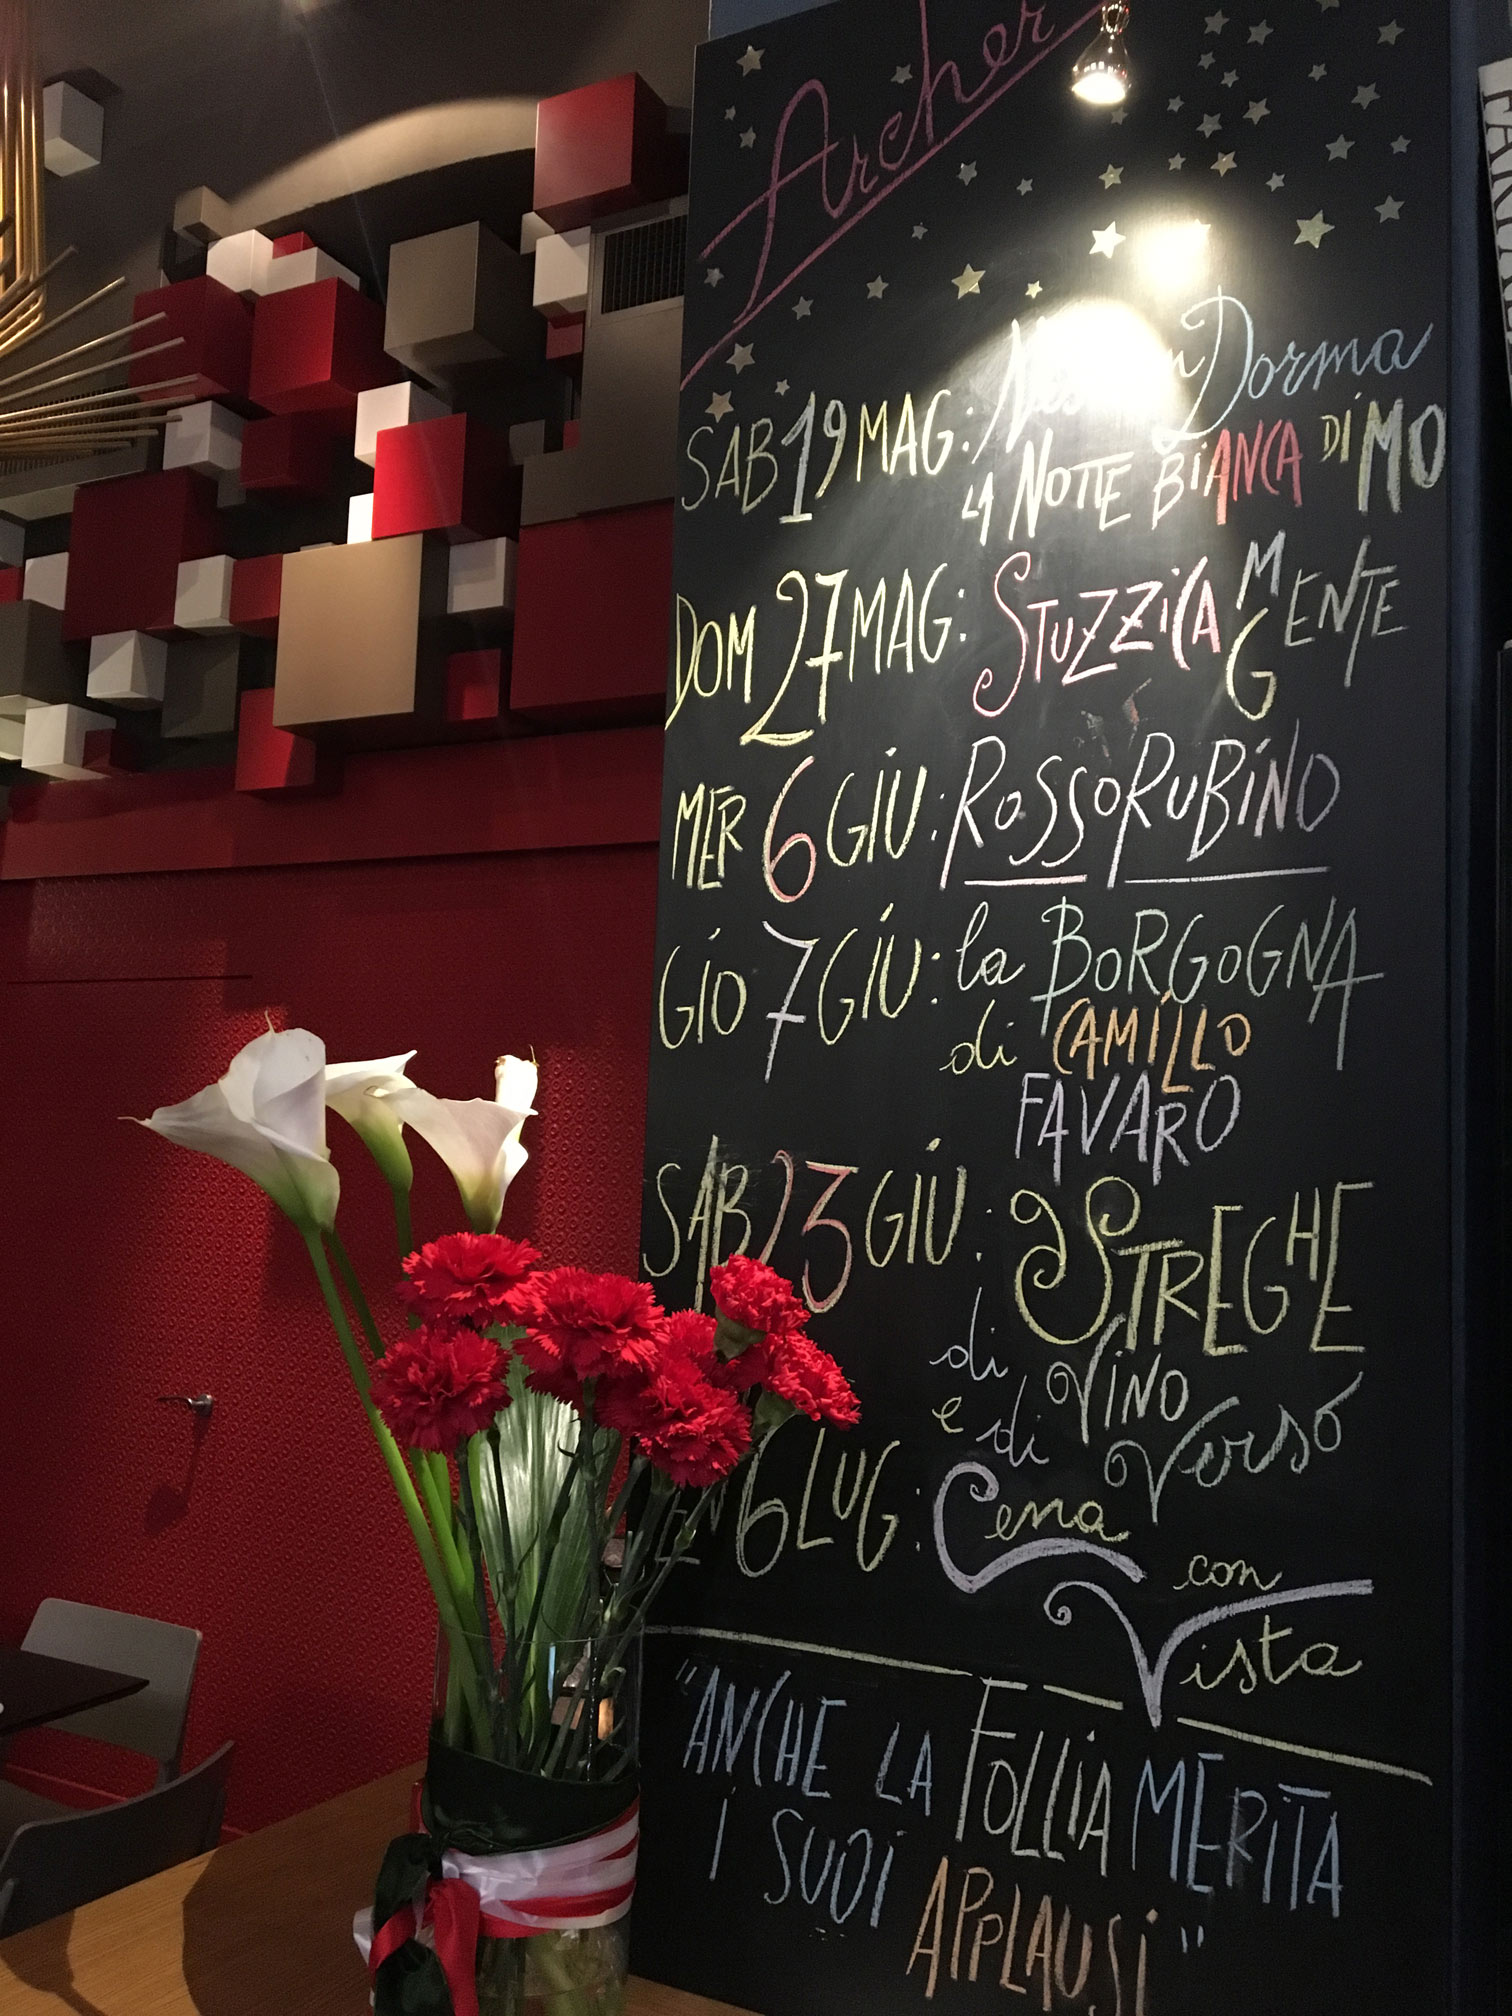 Archer
SAB 19 MAG: Nessun Dorma
LA NOTTE BIANCA DI MO
DOM 27 MAG: STUZZICAMENTE
G
MER 6 GIU: ROSSORUBINO
GIO 7 GIU: la BORGOGNA
di CAMILLO
FAVARO
SAB 23 GIU: STREGHE
di VINO
e di Verso
6 LUG: Cena
con
Vista
"ANCHE LA FOLLIA MERITA
I SUOI APPLAUSI"